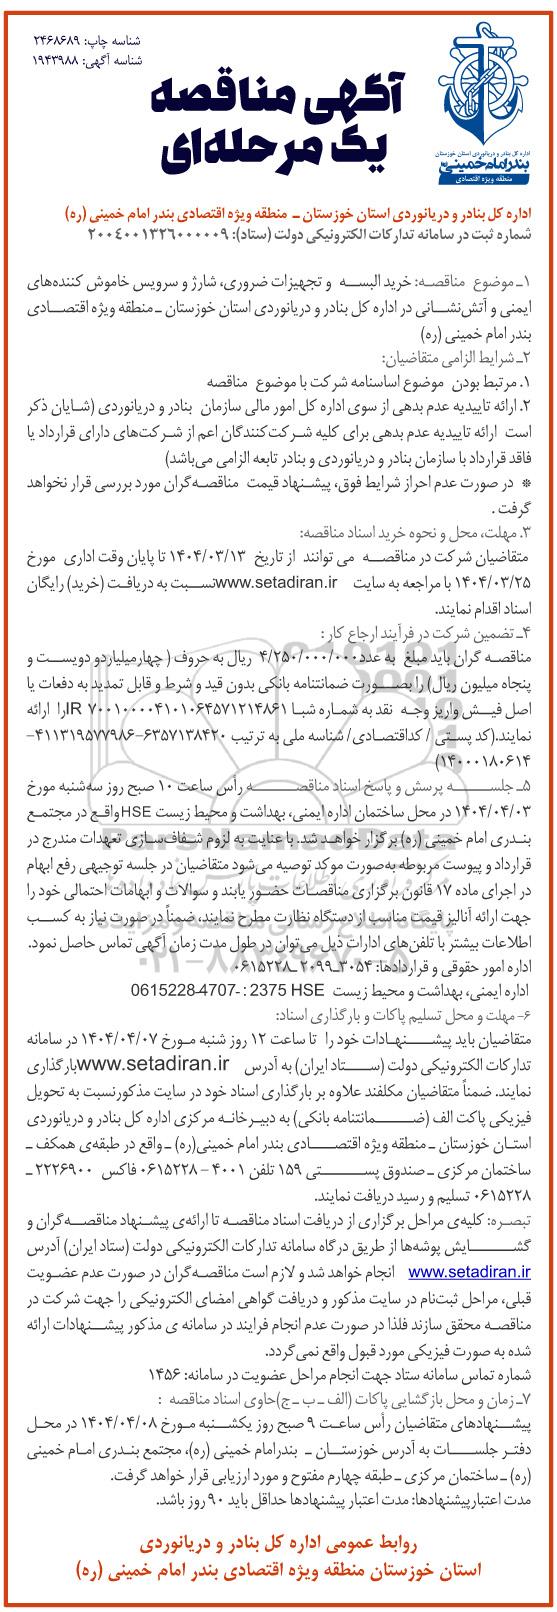 شناسه چاپ: ۲۴۶۸۶۸۹
شناسه آگهی: ۱۹۴۳۹۸۸
آگهی مناقصه
یک مرحله‌ای
اداره کل بنادر و دریانوردی استان خوزستان
بندر امام خمینی (ره)
منطقه ویژه اقتصادی
اداره کل بنادر و دریانوردی استان خوزستان ـ منطقه ویژه اقتصادی بندر امام خمینی (ره)
شماره ثبت در سامانه تدارکات الکترونیکی دولت (ستاد): ۲۰۰۴۰۰۱۳۲۶۰۰۰۰۰۹
۱ـ موضوع مناقصه: خرید البسه و تجهیزات ضروری، شارژ و سرویس خاموش کننده‌های
ایمنی و آتش‌نشانی در اداره کل بنادر و دریانوردی استان خوزستان ـ منطقه ویژه اقتصادی
بندر امام خمینی (ره)
۲ـ شرایط الزامی متقاضیان:
۱. مرتبط بودن موضوع اساسنامه شرکت با موضوع مناقصه
۲. ارائه تاییدیه عدم بدهی از سوی اداره کل امور مالی سازمان بنادر و دریانوردی (شایان ذکر
است ارائه تاییدیه عدم بدهی برای کلیه شرکت‌کنندگان اعم از شرکت‌های دارای قرارداد یا
فاقد قرارداد با سازمان بنادر و دریانوردی و بنادر تابعه الزامی می‌باشد)
* در صورت عدم احراز شرایط فوق، پیشنهاد قیمت مناقصه‌گران مورد بررسی قرار نخواهد
گرفت.
۳. مهلت، محل و نحوه خرید اسناد مناقصه:
متقاضیان شرکت در مناقصه می توانند از تاریخ ۱۴۰۴/۰۳/۱۳ تا پایان وقت اداری مورخ
۱۴۰۴/۰۳/۲۵ با مراجعه به سایت www.setadiran.ir نسبت به دریافت (خرید) رایگان
اسناد اقدام نمایند.
۴ـ تضمین شرکت در فرآیند ارجاع کار:
مناقصه گران باید مبلغ به عدد ۴/۲۵۰/۰۰۰/۰۰۰ ریال به حروف ( چهارمیلیاردو دویست و
پنجاه میلیون ریال) را بصورت ضمانتنامه بانکی بدون قید و شرط و قابل تمدید به دفعات یا
اصل فیش واریز وجه نقد به شماره شبا IR ۷۰۰۱۰۰۰۰۴۱۰۱۰۶۴۵۷۱۲۱۴۸۶۱ را ارائه
نمایند.(کد پستی / کداقتصادی/ شناسه ملی به ترتیب ۶۳۵۷۱۳۸۴۲۰-۴۱۱۳۱۹۵۷۷۹۸۶-
۱۴۰۰۰۱۸۰۶۱۴)
۵ـ جلسه پرسش و پاسخ اسناد مناقصه رأس ساعت ۱۰ صبح روز سه‌شنبه مورخ
۱۴۰۴/۰۴/۰۳ در محل ساختمان اداره ایمنی، بهداشت و محیط زیست HSE واقع در مجتمع
بندری امام خمینی (ره) برگزار خواهد شد. با عنایت به لزوم شفاف‌سازی تعهدات مندرج در
قرارداد و پیوست مربوطه به‌صورت موکد توصیه می‌شود متقاضیان در جلسه توجیهی رفع ابهام
در اجرای ماده ۱۷ قانون برگزاری مناقصات حضور یابند و سوالات و ابهامات احتمالی خود را
جهت ارائه آنالیز قیمت مناسب از دستگاه نظارت مطرح نمایند، ضمناً در صورت نیاز به کسب
اطلاعات بیشتر با تلفن‌های ادارات ذیل می‌توان در طول مدت زمان آگهی تماس حاصل نمود.
اداره امور حقوقی و قراردادها: ۳۰۵۴ـ۲۰۹۹ـ۰۶۱۵۲۲۸
اداره ایمنی، بهداشت و محیط زیست HSE 2375 : -0615228-4707
۶- مهلت و محل تسلیم پاکات و بارگذاری اسناد:
متقاضیان باید پیشنهادات خود را تا ساعت ۱۲ روز شنبه مورخ ۱۴۰۴/۰۴/۰۷ در سامانه
تدارکات الکترونیکی دولت (ستاد ایران) به آدرس www.setadiran.ir بارگذاری
نمایند. ضمناً متقاضیان مکلفند علاوه بر بارگذاری اسناد خود در سایت مذکورنسبت به تحویل
فیزیکی پاکت الف (ضمانتنامه بانکی) به دبیرخانه مرکزی اداره کل بنادر و دریانوردی
استان خوزستان ـ منطقه ویژه اقتصادی بندر امام خمینی(ره) ـ واقع در طبقه‌ی همکف ـ
ساختمان مرکزی ـ صندوق پستی ۱۵۹ تلفن ۴۰۰۱ - ۰۶۱۵۲۲۸ فاکس ۲۲۲۶۹۰۰ ـ
۰۶۱۵۲۲۸ تسلیم و رسید دریافت نمایند.
تبصره: کلیه‌ی مراحل برگزاری از دریافت اسناد مناقصه تا ارائه‌ی پیشنهاد مناقصه‌گران و
گشایش پوشه‌ها از طریق درگاه سامانه تدارکات الکترونیکی دولت (ستاد ایران) آدرس
www.setadiran.ir انجام خواهد شد و لازم است مناقصه‌گران در صورت عدم عضویت
قبلی، مراحل ثبت‌نام در سایت مذکور و دریافت گواهی امضای الکترونیکی را جهت شرکت در
مناقصه محقق سازند فلذا در صورت عدم انجام فرایند در سامانه ی مذکور پیشنهادات ارائه
شده به صورت فیزیکی مورد قبول واقع نمی‌گردد.
شماره تماس سامانه ستاد جهت انجام مراحل عضویت در سامانه: ۱۴۵۶
۷ـ زمان و محل بازگشایی پاکات (الف ـ ب ـ ج)حاوی اسناد مناقصه :
پیشنهادهای متقاضیان رأس ساعت ۹ صبح روز یکشنبه مورخ ۱۴۰۴/۰۴/۰۸ در محل
دفتر جلسات به آدرس خوزستان ـ بندرامام خمینی (ره)، مجتمع بندری امام خمینی
(ره) ـ ساختمان مرکزی ـ طبقه چهارم مفتوح و مورد ارزیابی قرار خواهد گرفت.
مدت اعتبارپیشنهادها: مدت اعتبار پیشنهادها حداقل باید ۹۰ روز باشد.
روابط عمومی اداره کل بنادر و دریانوردی
استان خوزستان منطقه ویژه اقتصادی بندر امام خمینی (ره)